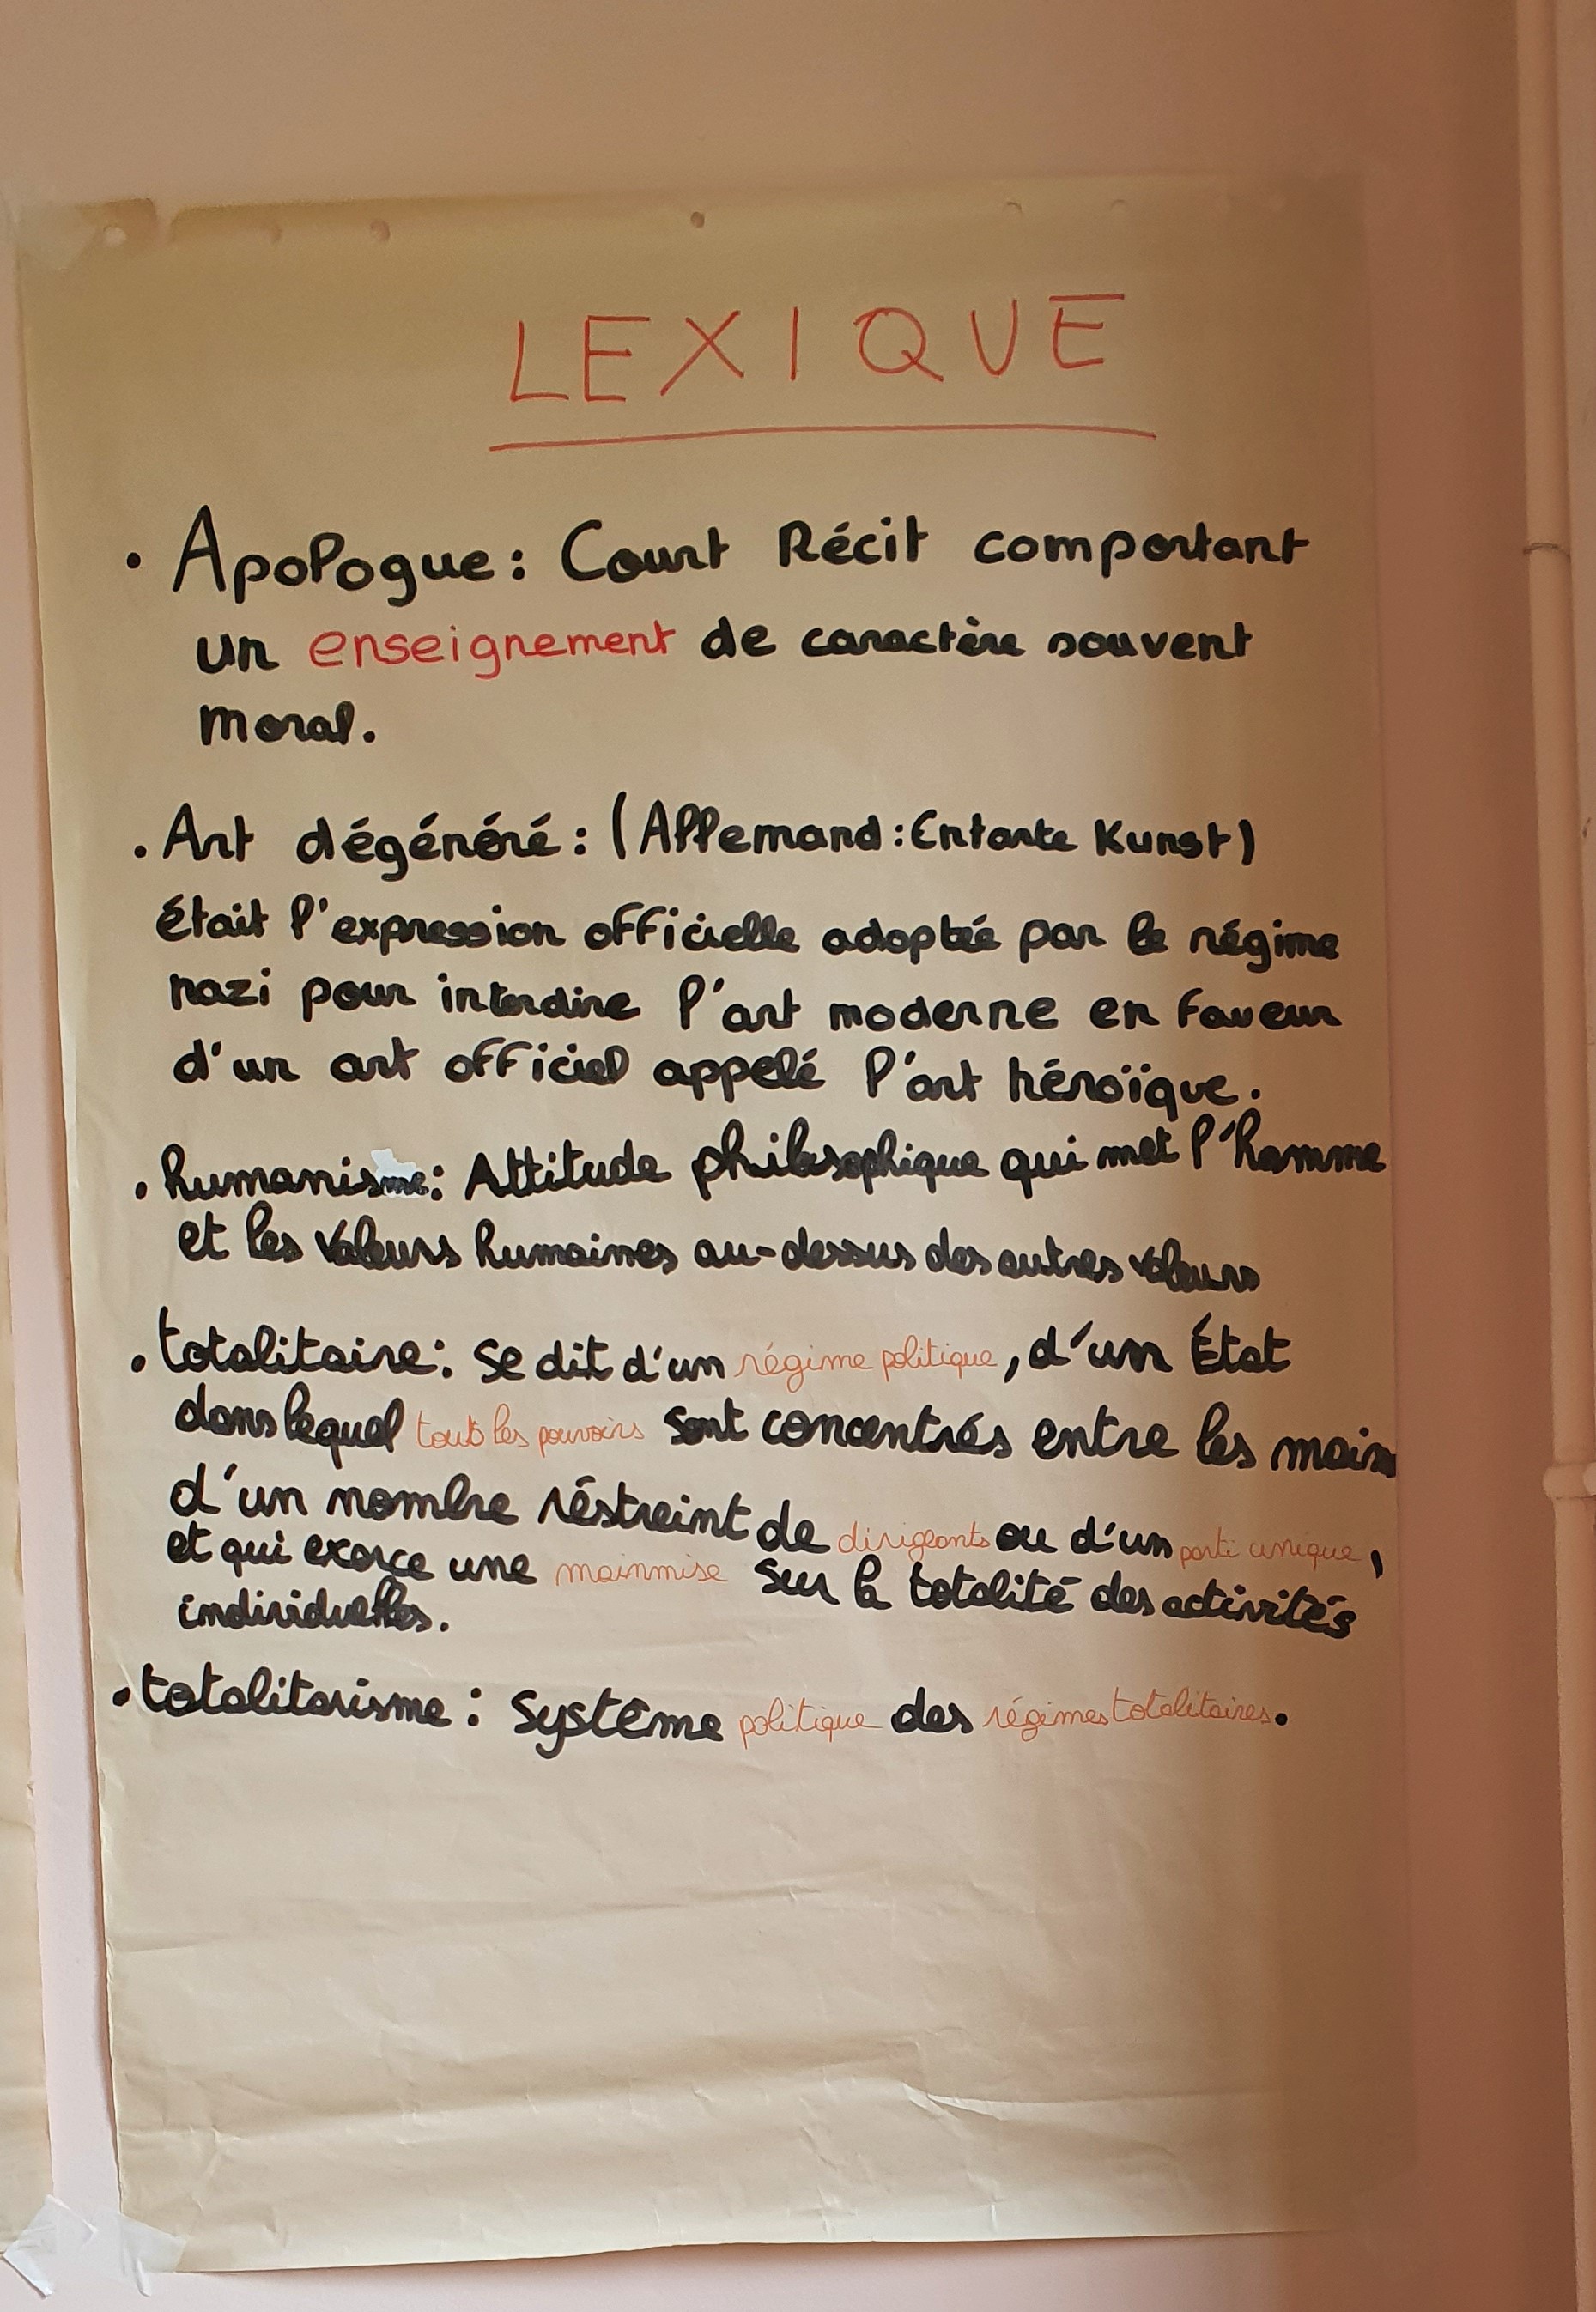 LEXIQUE
• Apologue : Court Récit comportant
un enseignement de caractère souvent
moral.
• Art dégénéré : (Allemand : Entarte Kunst)
était l'expression officielle adoptée par le régime
nazi pour interdire l'art moderne en faveur
d'un art officiel appelé l'art héroïque.
• humanisme : Attitude philosophique qui met l'homme
et les valeurs humaines au-dessus des autres valeurs
• totalitaire : se dit d'un régime politique, d'un État
dans lequel touts les pouvoirs sont concentrés entre les mains
d'un nombre réstreint de dirigeants ou d'un parti unique,
et qui exerce une mainmise sur la totalité des activités
individuelles.
• totalitarisme : système politique des régimes totalitaires.